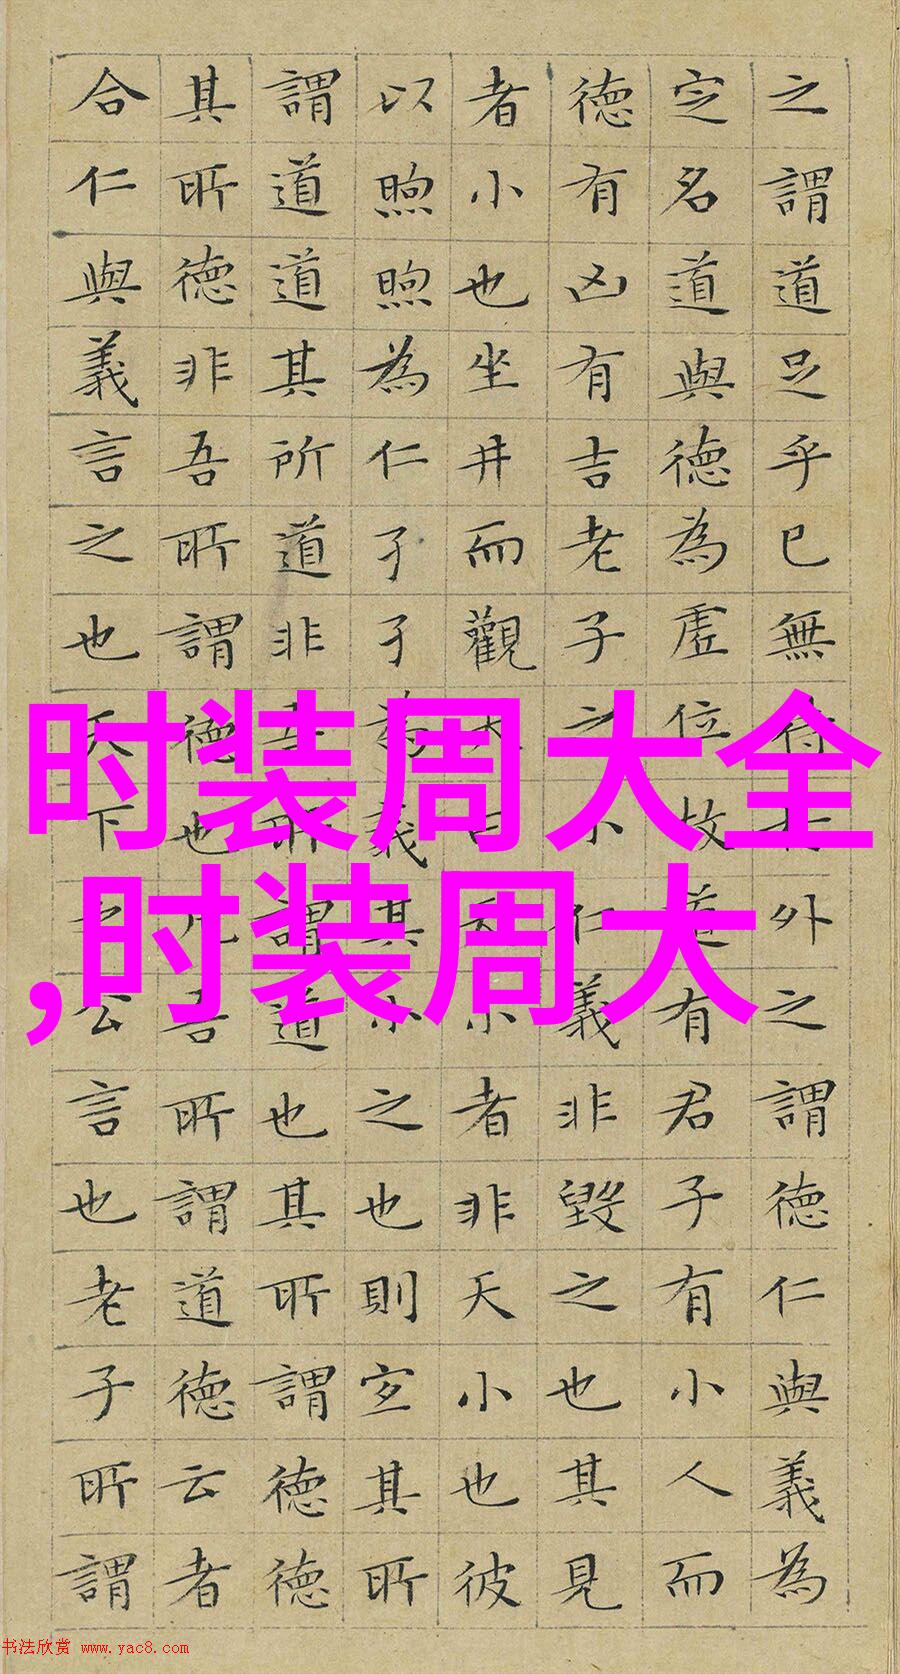 之謂道足乎已無待外之謂德仁與義為
定名道與德為虛位故道有君子有小人而
德有凶有吉老子之小仁義非毀之也其見
者小也坐井而觀天曰天小者非天小也彼
以煦煦為仁孑孑為義其小之也則宜其所
謂道道其所道非吾所謂道也其所謂德德
其所德非吾所謂德也凡吾所謂道德云者
合仁與義言之也天下之公言也老子所謂
时装周大全
,时装周大
书法欣赏 www.yac8.com